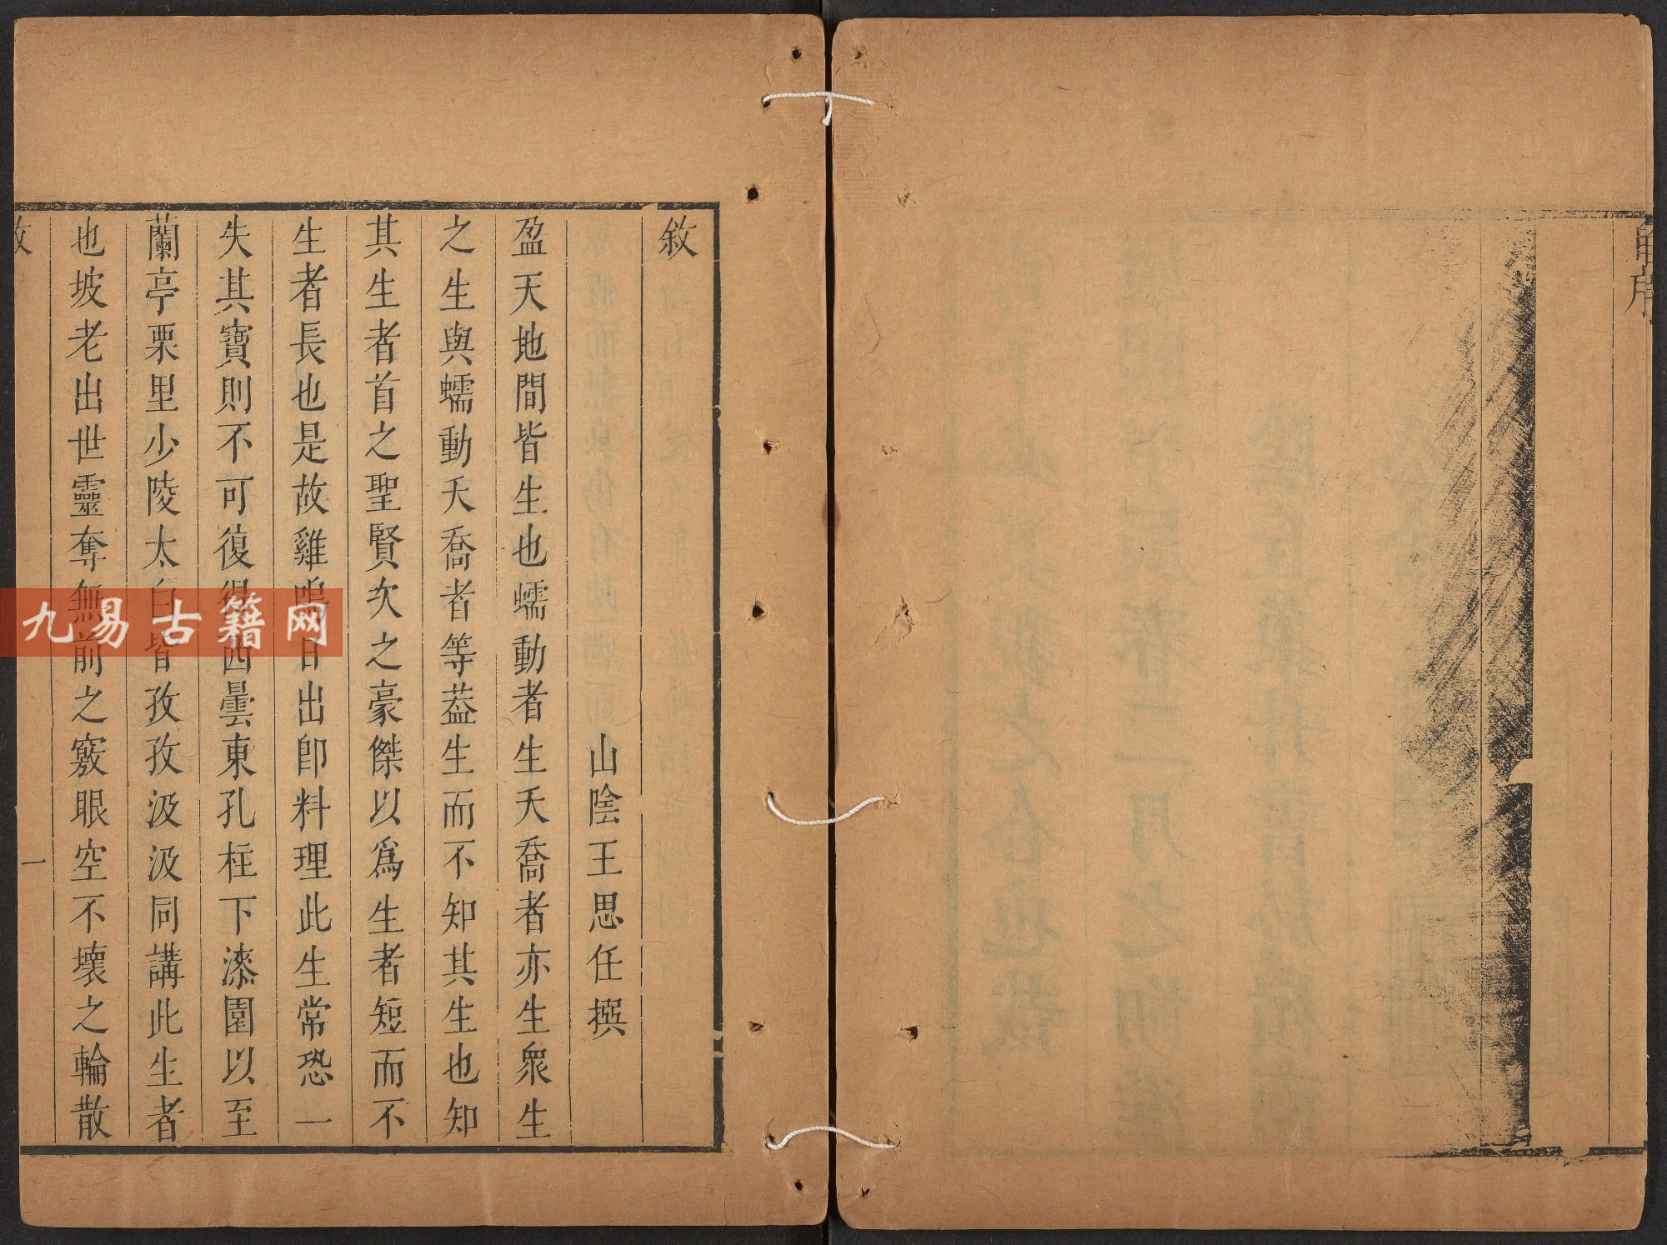 敘
山陰王思任撰
盈天地間皆生也蠕動者生夭喬者亦生衆生
之生與蠕動夭喬者等葢生而不知其生也知
其生者首之聖賢次之豪傑以爲生者短而不
生者長也是故雞鳴日出卽料理此生常恐一
失其寶則不可復得西曇東孔柱下漆園以至
蘭亭栗里少陵太白皆孜孜汲汲同講此生者
也坡老出世靈奪無前之竅眼空不壞之輪散
敘
一
九易古籍网